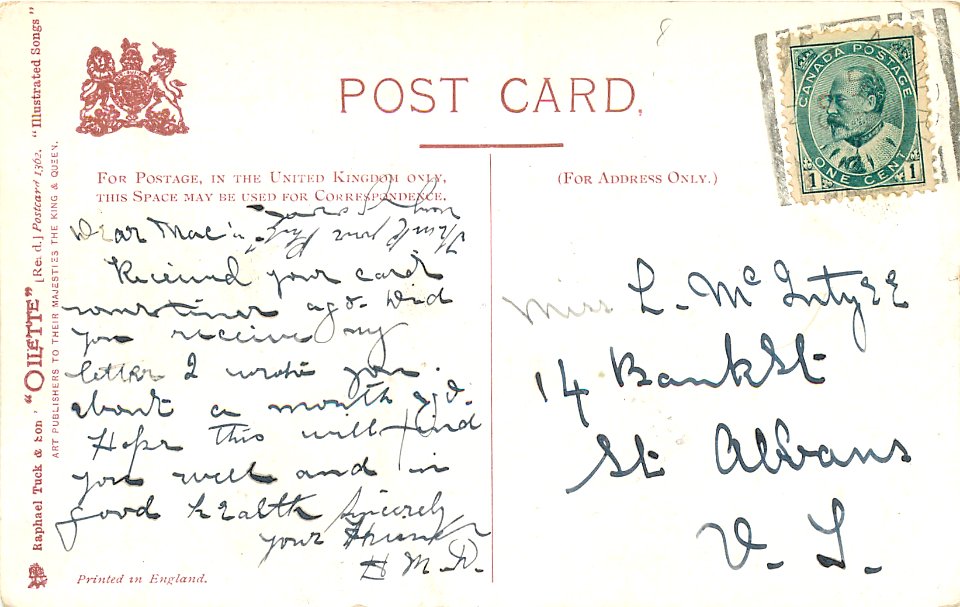 POST CARD.
FOR POSTAGE, IN THE UNITED KINGDOM ONLY,
THIS SPACE MAY BE USED FOR CORRESPONDENCE.
(FOR ADDRESS ONLY.)
CANADA POSTAGE
1 ONE CENT 1
Dear Mac
Received your card
sometimes ago. Did
you receive my
letter I wrote you
about a month ago.
Hope this will find
you well and in
good health Sincerely
your
H M. D.
Miss L. McIntyee
14 Bank St
St Albans
V. S.
Raphael Tuck & Son "OILETTE" [Regd.] Postcard 1362. "Illustrated Songs"
ART PUBLISHERS TO THEIR MAJESTIES THE KING & QUEEN.
Printed in England.